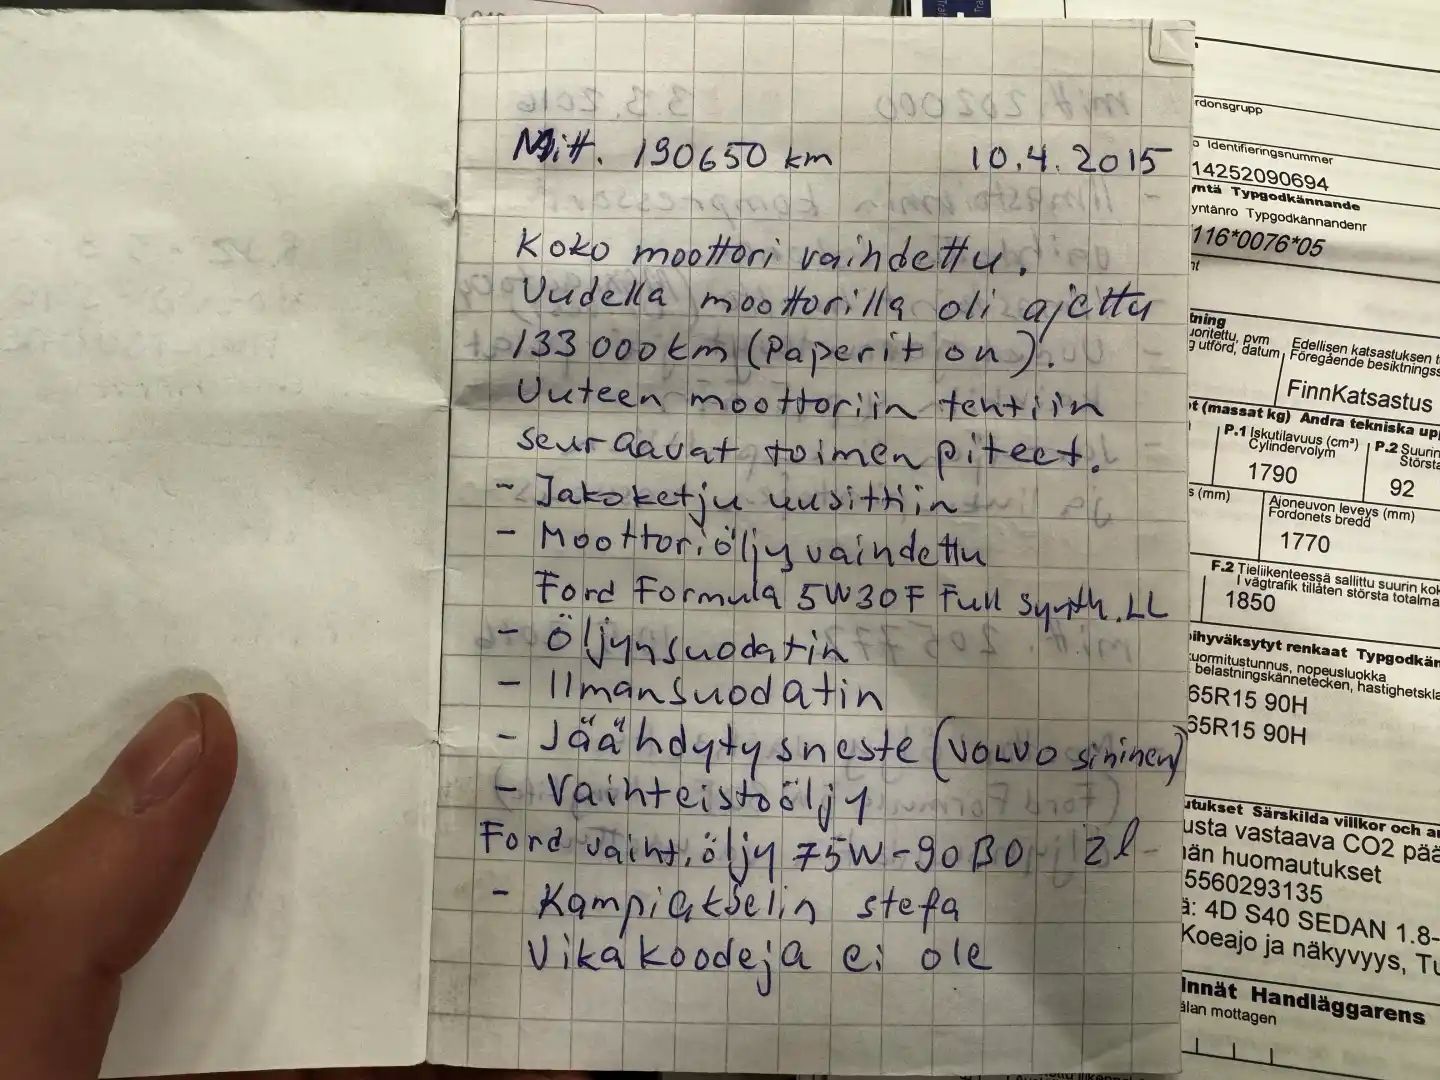 Mitt. 190650 km 10.4.2015
Koko moottori vaihdettu.
Uudella moottorilla oli ajettu
133 000 km (Paperit on).
Uuteen moottoriin tehtiin
seuraavat toimenpiteet.
- Jakoketju uusittiin
- Moottoriöljy vaihdettu
Ford Formula 5W30F Full Synth. LL
- Öljynsuodatin
- Ilmansuodatin
- Jäähdytysneste (VOLVO sininen)
- Vaihteistoöljy
Ford vaiht.öljy 75W-90BO 2l
- Kampiakselin stefa
Vikakoodeja ei ole
rdonsgrupp
o Identifieringsnummer
14252090694
yntä Typgodkännande
yntänro Typgodkännandenr
116*0076*05
nt
tning
uoritettu, pvm
g utförd, datum
Edellisen katsastuksen t
Föregående besiktningss
FinnKatsastus
t (massat kg) Andra tekniska upp
P.1 Iskutilavuus (cm³)
Cylindervolym
1790
P.2 Suurin
Största
92
s (mm)
Ajoneuvon leveys (mm)
Fordonets bredd
1770
F.2 Tieliikenteessä sallittu suurin kok
I vägtrafik tillåten största totalma
1850
ihyväksytyt renkaat Typgodkän
uormitustunnus, nopeusluokka
belastningskännetecken, hastighetskla
65R15 90H
65R15 90H
utukset Särskilda villkor och a
usta vastaava CO2 pää
iän huomautukset
5560293135
ä: 4D S40 SEDAN 1.8-
Koeajo ja näkyvyys, Tu
innät Handläggarens
älan mottagen